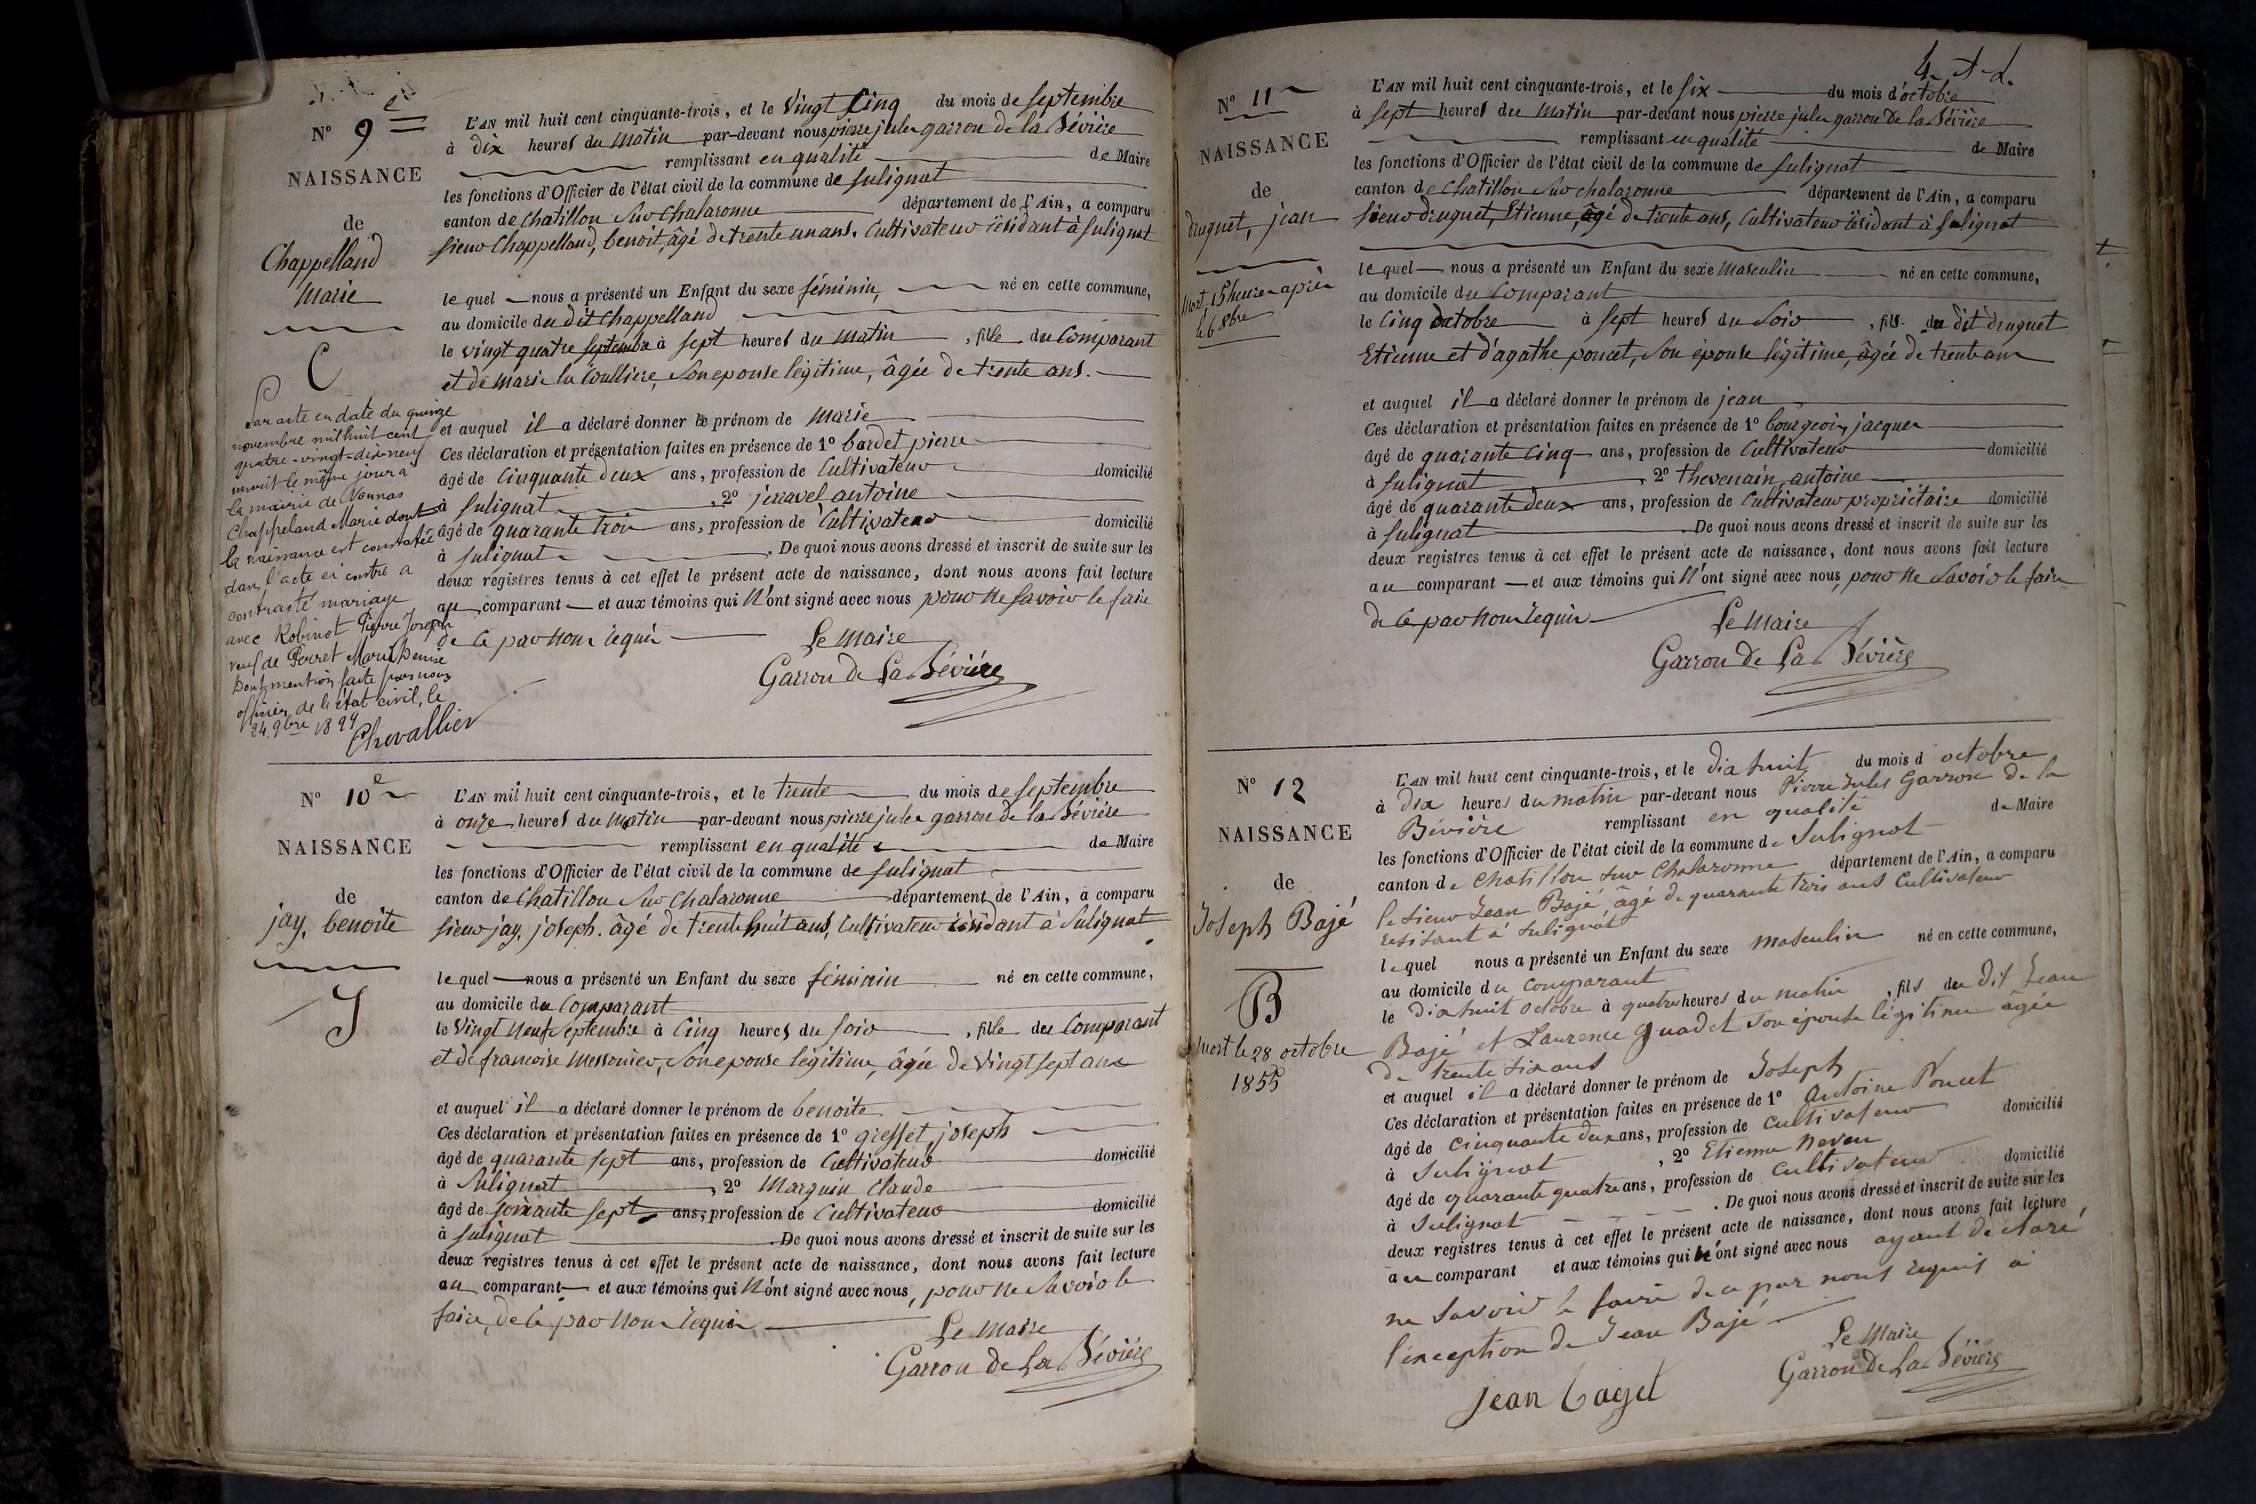 N° 9e
NAISSANCE
de
Chappelland
Marie
C
Par acte en date du quinze
novembre mil huit cent
quatre-vingt-dix-neuf
inscrit le même jour à
la mairie de Vonnas
Chappeland Marie dont
la naissance est constatée
dans l'acte ci contre a
contracté mariage
avec Robinot Pierre Joseph
veuf de Perret Marie Denise
Dont mention faite par nous
officier de l'état civil, le
24 9bre 1899
Chevallier
L'AN mil huit cent cinquante-trois, et le Vingt Cinq du mois de septembre
à dix heures du matin par-devant nous pierre jules garron de la Bévière
remplissant en qualité de Maire
les fonctions d'Officier de l'état civil de la commune de sulignat
canton de chatillon Sur Chalaronne département de l'Ain, a comparu
sieur Chappelland, benoit, âgé de trente un ans, Cultivateur résidant à Sulignat
le quel nous a présenté un Enfant du sexe féminin, né en cette commune,
au domicile du dit Chappelland
le vingt quatre septembre à sept heures du matin, fille du Comparant
et de marie la Coullière, Son epouse légitime, âgée de trente ans.
et auquel il a déclaré donner le prénom de marie
Ces déclaration et présentation faites en présence de 1° bardet pierre
âgé de Cinquante deux ans, profession de Cultivateur domicilié
à Sulignat, 2° jerravel antoine
âgé de quarante trois ans, profession de Cultivateur domicilié
à Sulignat. De quoi nous avons dressé et inscrit de suite sur les
deux registres tenus à cet effet le présent acte de naissance, dont nous avons fait lecture
au comparant et aux témoins qui N'ont signé avec nous pour ne Savoir le faire
de ce par nous requis
Le Maire
Garron de La Bévière
N° 10e
NAISSANCE
de
jay, benoite
J
L'AN mil huit cent cinquante-trois, et le trente du mois de septembre
à onze heures du matin par-devant nous pierre jules garron de la Bévière
remplissant en qualité de Maire
les fonctions d'Officier de l'état civil de la commune de sulignat
canton de Chatillon Sur Chalaronne département de l'Ain, a comparu
sieur jay, joseph. âgé de trente huit ans, Cultivateur résidant à Sulignat
le quel nous a présenté un Enfant du sexe féminin né en cette commune,
au domicile du Comparant
le Vingt Neuf Septembre à Cinq heures du soir, fille du Comparant
et de francoise Messonier, Son epouse légitime, âgée de Vingt sept ans
et auquel il a déclaré donner le prénom de benoite
Ces déclaration et présentation faites en présence de 1° greffet, joseph
âgé de quarante sept ans, profession de Cultivateur domicilié
à Sulignat, 2° Marguin Claude
âgé de soixante sept ans, profession de Cultivateur domicilié
à Sulignat. De quoi nous avons dressé et inscrit de suite sur les
deux registres tenus à cet effet le présent acte de naissance, dont nous avons fait lecture
au comparant et aux témoins qui N'ont signé avec nous, pour ne Savoir le
faire, de ce par nous requis
Le Maire
Garron de La Bévière
N° 11
NAISSANCE
de
druguet, jean
mort 15 heures après
le 6 8bre
L'AN mil huit cent cinquante-trois, et le six du mois d'octobre
à sept heures du matin par-devant nous pierre jules garron De la Bévière
remplissant en qualité de Maire
les fonctions d'Officier de l'état civil de la commune de sulignat
canton de Chatillon Sur chalaronne département de l'Ain, a comparu
sieur druguet, Etienne, âgé de trente ans, Cultivateur résidant à Sulignat
le quel nous a présenté un Enfant du sexe masculin né en cette commune,
au domicile du Comparant
le Cinq octobre à sept heures du Soir, fils du dit druguet
Etienne et d'agathe poncet, Son épouse légitime, âgée de trente ans
et auquel il a déclaré donner le prénom de jean
Ces déclaration et présentation faites en présence de 1° bourgeois, jacques
âgé de quarante Cinq ans, profession de Cultivateur domicilié
à Sulignat, 2° thevenain, antoine
âgé de quarante deux ans, profession de Cultivateur propriétaire domicilié
à Sulignat. De quoi nous avons dressé et inscrit de suite sur les
deux registres tenus à cet effet le présent acte de naissance, dont nous avons fait lecture
au comparant et aux témoins qui N'ont signé avec nous, pour Ne Savoir le faire
de ce par nous requis
Le Maire
Garron de La Bévière
N° 12
NAISSANCE
de
Joseph Bajé
B
mort le 28 octobre
1855
L'AN mil huit cent cinquante-trois, et le dix huit du mois d'octobre
à dix heures du matin par-devant nous Pierre Jules Garron de la
Bévière remplissant en qualité de Maire
les fonctions d'Officier de l'état civil de la commune de Sulignat
canton de Chatillon sur Chalaronne département de l'Ain, a comparu
le sieur Jean Bajé âgé de quarante trois ans Cultivateur
résidant à Sulignat
lequel nous a présenté un Enfant du sexe masculin né en cette commune,
au domicile du comparant
le dix huit octobre à quatre heures du matin, fils du dit Jean
Bajé et Laurence Guadet son épouse légitime agée
de trente six ans
et auquel il a déclaré donner le prénom de Joseph
Ces déclaration et présentation faites en présence de 1° Antoine Poncet
âgé de cinquante deux ans, profession de cultivateur domicilié
à Sulignat, 2° Etienne Neveu
âgé de quarante quatre ans, profession de cultivateur domicilié
à Sulignat. De quoi nous avons dressé et inscrit de suite sur les
deux registres tenus à cet effet le présent acte de naissance, dont nous avons fait lecture
au comparant et aux témoins qui N'ont signé avec nous ayant déclaré
ne savoir le faire de ce par nous requis à
l'exception de Jean Bajé
Le Maire
Garron De La Bévière
jean bagel